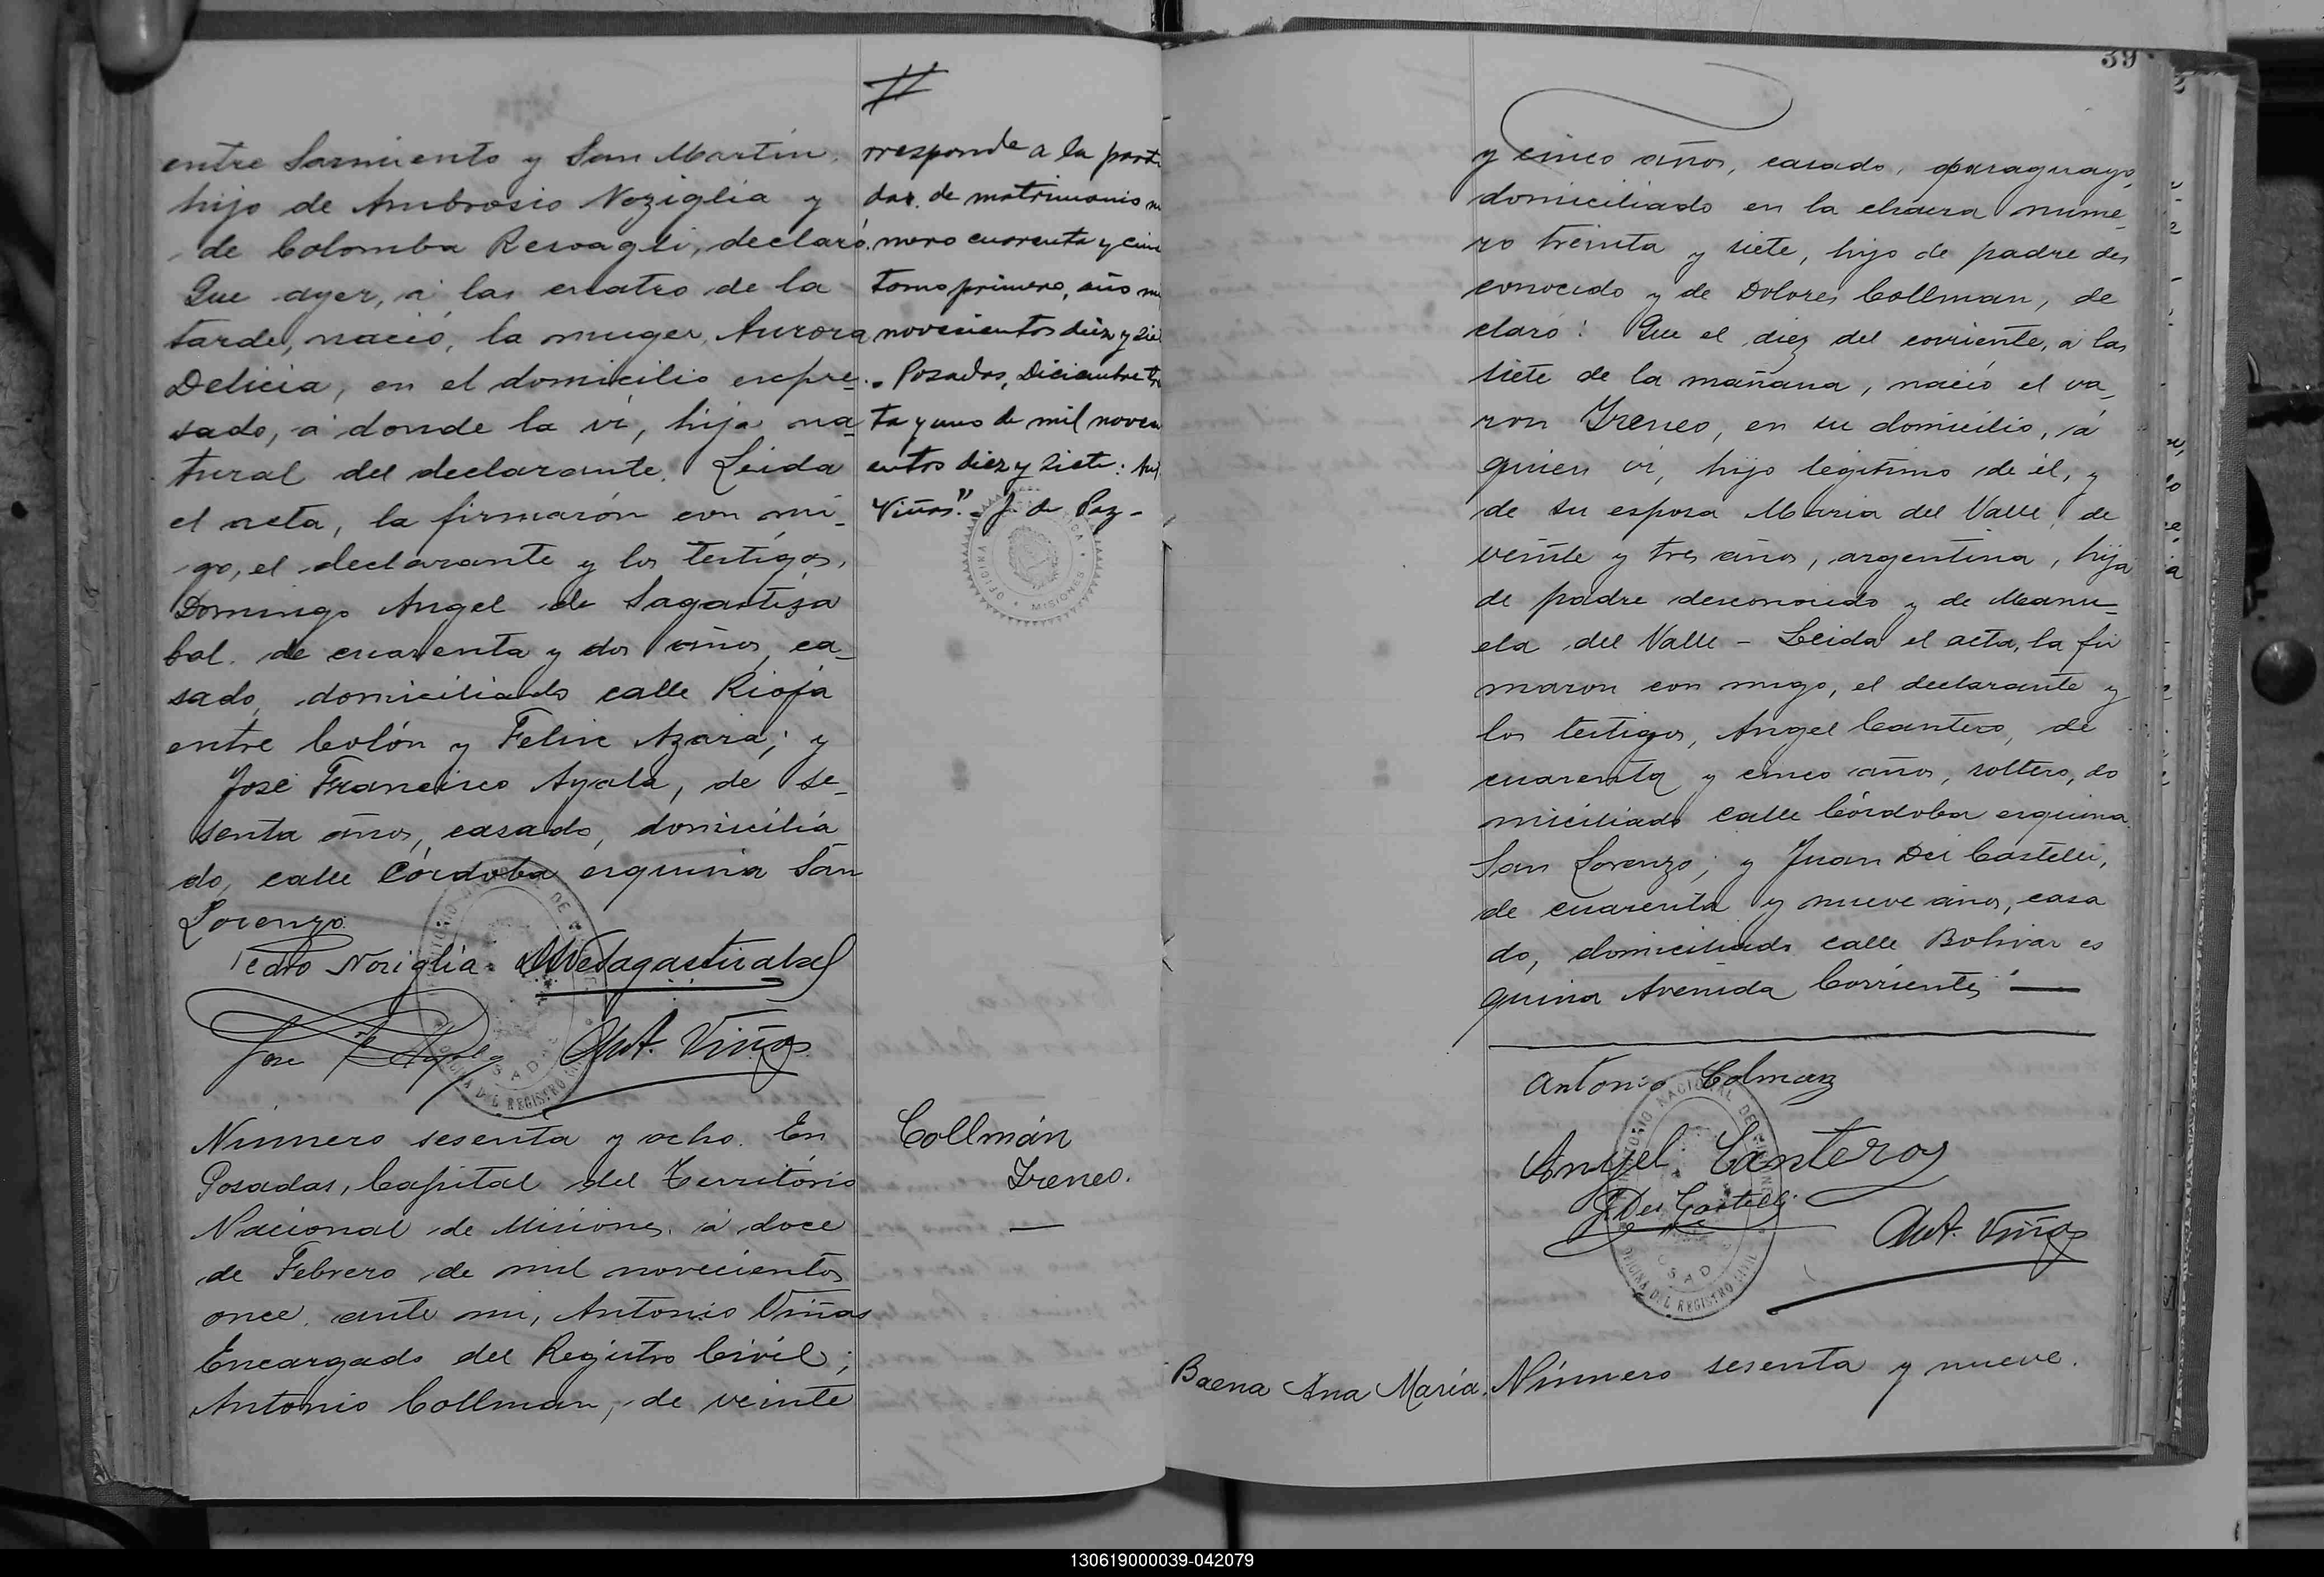 entre Sarmiento y San Martín,
hijo de Ambrosio Noziglia y
de Colomba Resvagli, declaró:
Que ayer, á las cuatro de la
tarde, nació, la muger, Aurora
Delicia, en el domicilio expre-
sado, á donde la ví, hija na-
tural del declarante. Leida
el acta, la firmarón con mi-
go, el declarante y los testigos,
Domingo Angel de Sagastiza
bal. de cuarenta y dos años, ca-
sado, domiciliado calle Rioja
entre Colón y Felix Azara; y
José Francisco Ayala, de se-
senta años, casado, domicilia
do, calle Córdoba esquina San
Lorenzo.
Pedro Noziglia
Ant. Viñas
Número sesenta y ocho. En
Posadas, Capital del Territorio
Nacional de Misiones, á doce
de Febrero de mil novecientos
once, ante mi, Antonio Viñas
Encargado del Registro Civil;
Antonio Collman, de veinte
#
rresponde a la parti
das de matrimonio
mero cuarenta y cin
tomo primero, año
novecientos diez y sie
Posadas, Diciembre tre
ta y uno de mil noveci
entos diez y siete: Ant
Viñas". J. de Paz-
OFICINA
MISIONES
Collmán
Ireneo.
39
y cinco años, casado, paraguayo,
domiciliado en la chacra núme-
ro treinta y siete, hijo de padre des
conocido y de Dolores Collman, de
claró: Que el diez del corriente, á las
siete de la mañana, nació el va-
ron Ireneo, en su domicilio, á
quien ví, hijo legítimo de él, y
de su esposa Maria del Valle, de
veinte y tres años, argentina, hija
de padre desconocido y de Manu-
ela del Valle - Leida el acta, la fir
maron con migo, el declarante y
los testigos, Angel Cantero, de
cuarenta y cinco años, soltero, do
miciliado calle Córdoba esquina
San Lorenzo; y Juan Dei Castelli,
de cuarenta y nueve años, casa
do, domiciliado calle Bolivar es
quina Avenida Corrientes
Antonio Colman
Angel Canteros
J. Dei Castelli
Ant. Viñas
OFICINA DEL REGISTRO CIVIL
Baena Ana María.
Número sesenta y nueve.
130619000039-042079